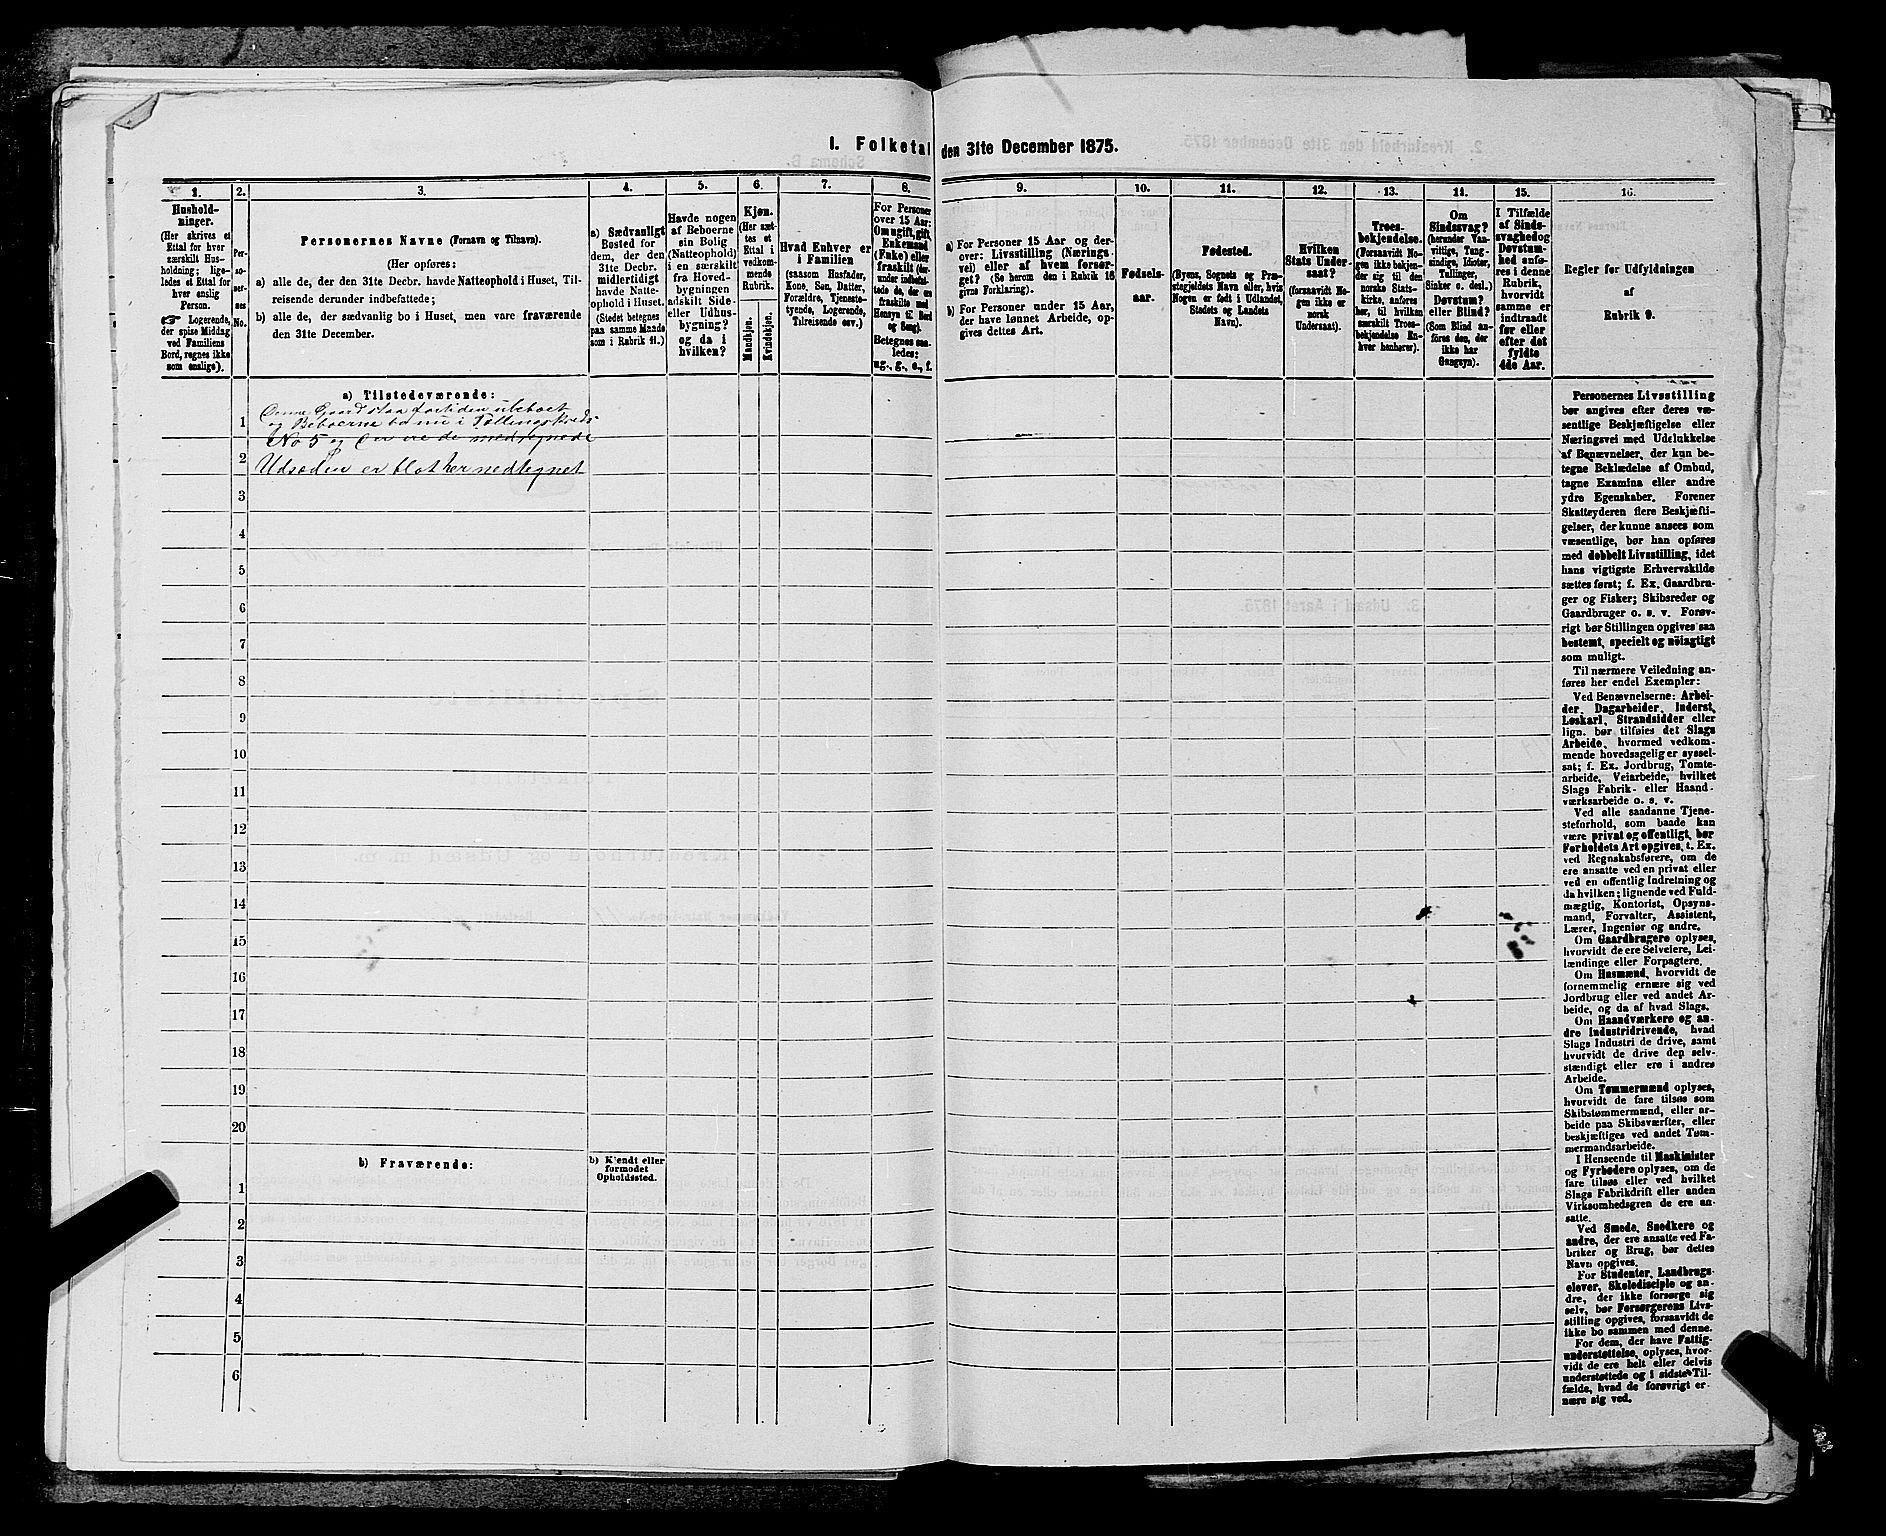 1. Folketal den 31te December 1875.
1.
2.
3.
4.
5.
6.
7.
8.
9.
10.
11.
12.
13.
14.
15.
16.
Hushold-
ninger.
(Her skrives et
Ettal for hver
særskilt Hus-
holdning; lige-
ledes et Ettal for
hver enslig
Person.
☞ Logerende,
der spise Middag
ved Familiens
Bord, regnes ikke
som enslige).
Per-
so-
ner-
nes
No.
Personernes Navne (Fornavn og Tilnavn).
(Her opføres:
a) alle de, der den 31te Decbr. havde Natteophold i Huset, Til-
reisende derunder indbefattede;
b) alle de, der sædvanlig bo i Huset, men vare fraværende
den 31te December.
a) Sædvanligt
Bosted for
dem, der den
31te Decbr.
midlertidigt
havde Natte-
ophold i Huset.
(Stedet betegnes
paa samme Maade
som i Rubrik 11.)
Havde nogen
af Beboerne
sin Bolig
(Natteophold)
i en særskilt
fra Hoved-
bygningen
adskilt Side-
eller Udhus-
bygning?
og da i
hvilken?
Kjøn.
(Her sæt-
tes et
Ettal i
vedkom-
mende
Rubrik.
Mandkjøn.
Kvindekjøn.
Hvad Enhver er
i Familien
(saasom Husfader,
Kone, Søn, Datter,
Forældre, Tjeneste-
tyende, Logerende,
Tilreisende osv.)
For Personer
over 15 Aar:
Om ugift, gift,
Enkemand
(Enke) eller
fraskilt (her-
under indbefat-
tede de, der ere
fraskilte med
Hensyn til Bord
og Seng).
Betegnes saa-
ledes:
ug., g., e., f.
a) For Personer 15 Aar og der-
over: Livsstilling (Nærings-
vei) eller af hvem forsør-
get? (Se herom den i Rubrik 16
givne Forklaring).
b) For Personer under 15 Aar,
der have lønnet Arbeide, op-
gives dettes Art.
Fødsels-
aar.
Fødested.
(Byens, Sognets og Præ-
stegjeldets Navn eller, hvis
Nogen er født i Udlandet,
Stedets og Landets
Navn).
Hvilken
Stats Under-
saat?
(forsaavidt No-
gen ikke er
norsk
Undersaat).
Troes-
bekjendelse.
(Forsaavidt No-
gen ikke bekjen-
der sig til den
norske Stats-
kirke, anføres
her, til hvilken
særskilt Troes-
bekjendelse En-
hver henhører).
Om
Sindssvag?
(herunder Van-
vittige, Tung-
sindige, Idioter,
Tullinger,
Sinker o. desl.)
Døvstum?
eller Blind?
(Som Blind an-
føres den, der
ikke har
Gangsyn).
I Tilfælde
af Sinds-
svaghed og
Døvstum-
hed anfø-
res i denne
Rubrik,
hvorvidt
samme er
indtraadt
før eller
efter det
fyldte
4de Aar.
Regler for Udfyldningen
af
Rubrik 9.
a) Tilstedeværende:
1
Denne Gaard staa fortiden ubeboet
og Beboerne bo nu i Tællingskreds
No 5 og der ere de medregnede
2
Udsæden er blot her nedtegnet
3
4
5
6
7
8
9
10
11
12
13
14
15
16
17
18
19
20
b) Fraværende:
b) Kjendt eller
formodet
Opholdssted.
1
2
3
4
5
6
Personernes Livsstilling
bør angives efter deres væ-
sentlige Beskjæftigelse eller
Næringsvei med Udelukkelse
af Benævnelser, der kun be-
tegne Beklædelse af Ombud,
tagne Examina eller andre
ydre Egenskaber. Forener
Skatteyderen flere Beskjæfti-
gelser, der kunne ansees som
væsentlige, bør han opføres
med dobbelt Livsstilling, idet
hans vigtigste Erhvervskilde
sættes først; f. Ex. Gaardbru-
ger og Fisker; Skibsreder og
Gaardbruger o. s. v. Forøv-
rigt bør Stillingen opgives saa
bestemt, specielt og nöiagtigt
som muligt.
Til nærmere Veiledning an-
føres her endel Exempler:
Ved Benævnelserne: Arbei-
der, Dagarbeider, Inderst,
Løskarl, Strandsidder eller
lign. bør tilføies det Slags
Arbeide, hvormed vedkom-
mende hovedsagelig er syssel-
sat; f. Ex. Jordbrug, Tomte-
arbeide, Veiarbeide, hvilket
Slags Fabrik- eller Haand-
værksarbeide o. s. v.
Ved alle saadanne Tjene-
steforhold, som baade kan
være privat og offentligt, bør
Forholdets Art opgives, t. Ex.
ved Regnskabsførere, om de
ere ansatte ved en privat eller
ved en offentlig Indretning og
da hvilken; lignende ved Fuld-
mægtig, Kontorist, Opsyns-
mand, Forvalter, Assistent,
Lærer, Ingeniør og andre.
Om Gaardbrugere oplyses,
hvorvidt de ere Selveiere, Lei-
lændinge eller Forpagtere.
Om Husmænd, hvorvidt de
fornemmelig ernære sig ved
Jordbrug eller ved andet Ar-
beide, og da af hvad Slags.
Om Haandværkere og an-
dre Industridrivende, hvad
Slags Industri de drive, samt
hvorvidt de drive den selv-
stændigt eller ere i andres
Arbeide.
Om Tømmermænd oplyses,
hvorvidt de fare tilsøs som
Skibstømmermænd, eller ar-
beide paa Skibsværfter, eller
beskjæftiges ved andet Tøm-
mermandsarbeide.
I Henseende til Maskinister
og Fyrbødere oplyses, om de
fare tilsøs eller ved hvilket
Slags Fabrikdrift eller anden
Virksomhedsgren de ere an-
satte.
Ved Smede, Snedkere og
andre, der ere ansatte ved Fa-
briker og Brug, bør dettes
Navn opgives.
For Studenter, Landbrugs-
elever, Skoledisciple og an-
dre, der ikke forsørge sig
selv, bør Forsørgerens Livs-
stilling opgives, forsaavidt de
ikke bo sammen med denne.
For dem, der have Fattig-
understøttelse, oplyses, hvor-
vidt de ere helt eller delvis
understøttede og i sidste Til-
fælde, hvad de forøvrigt er-
nære sig ved.